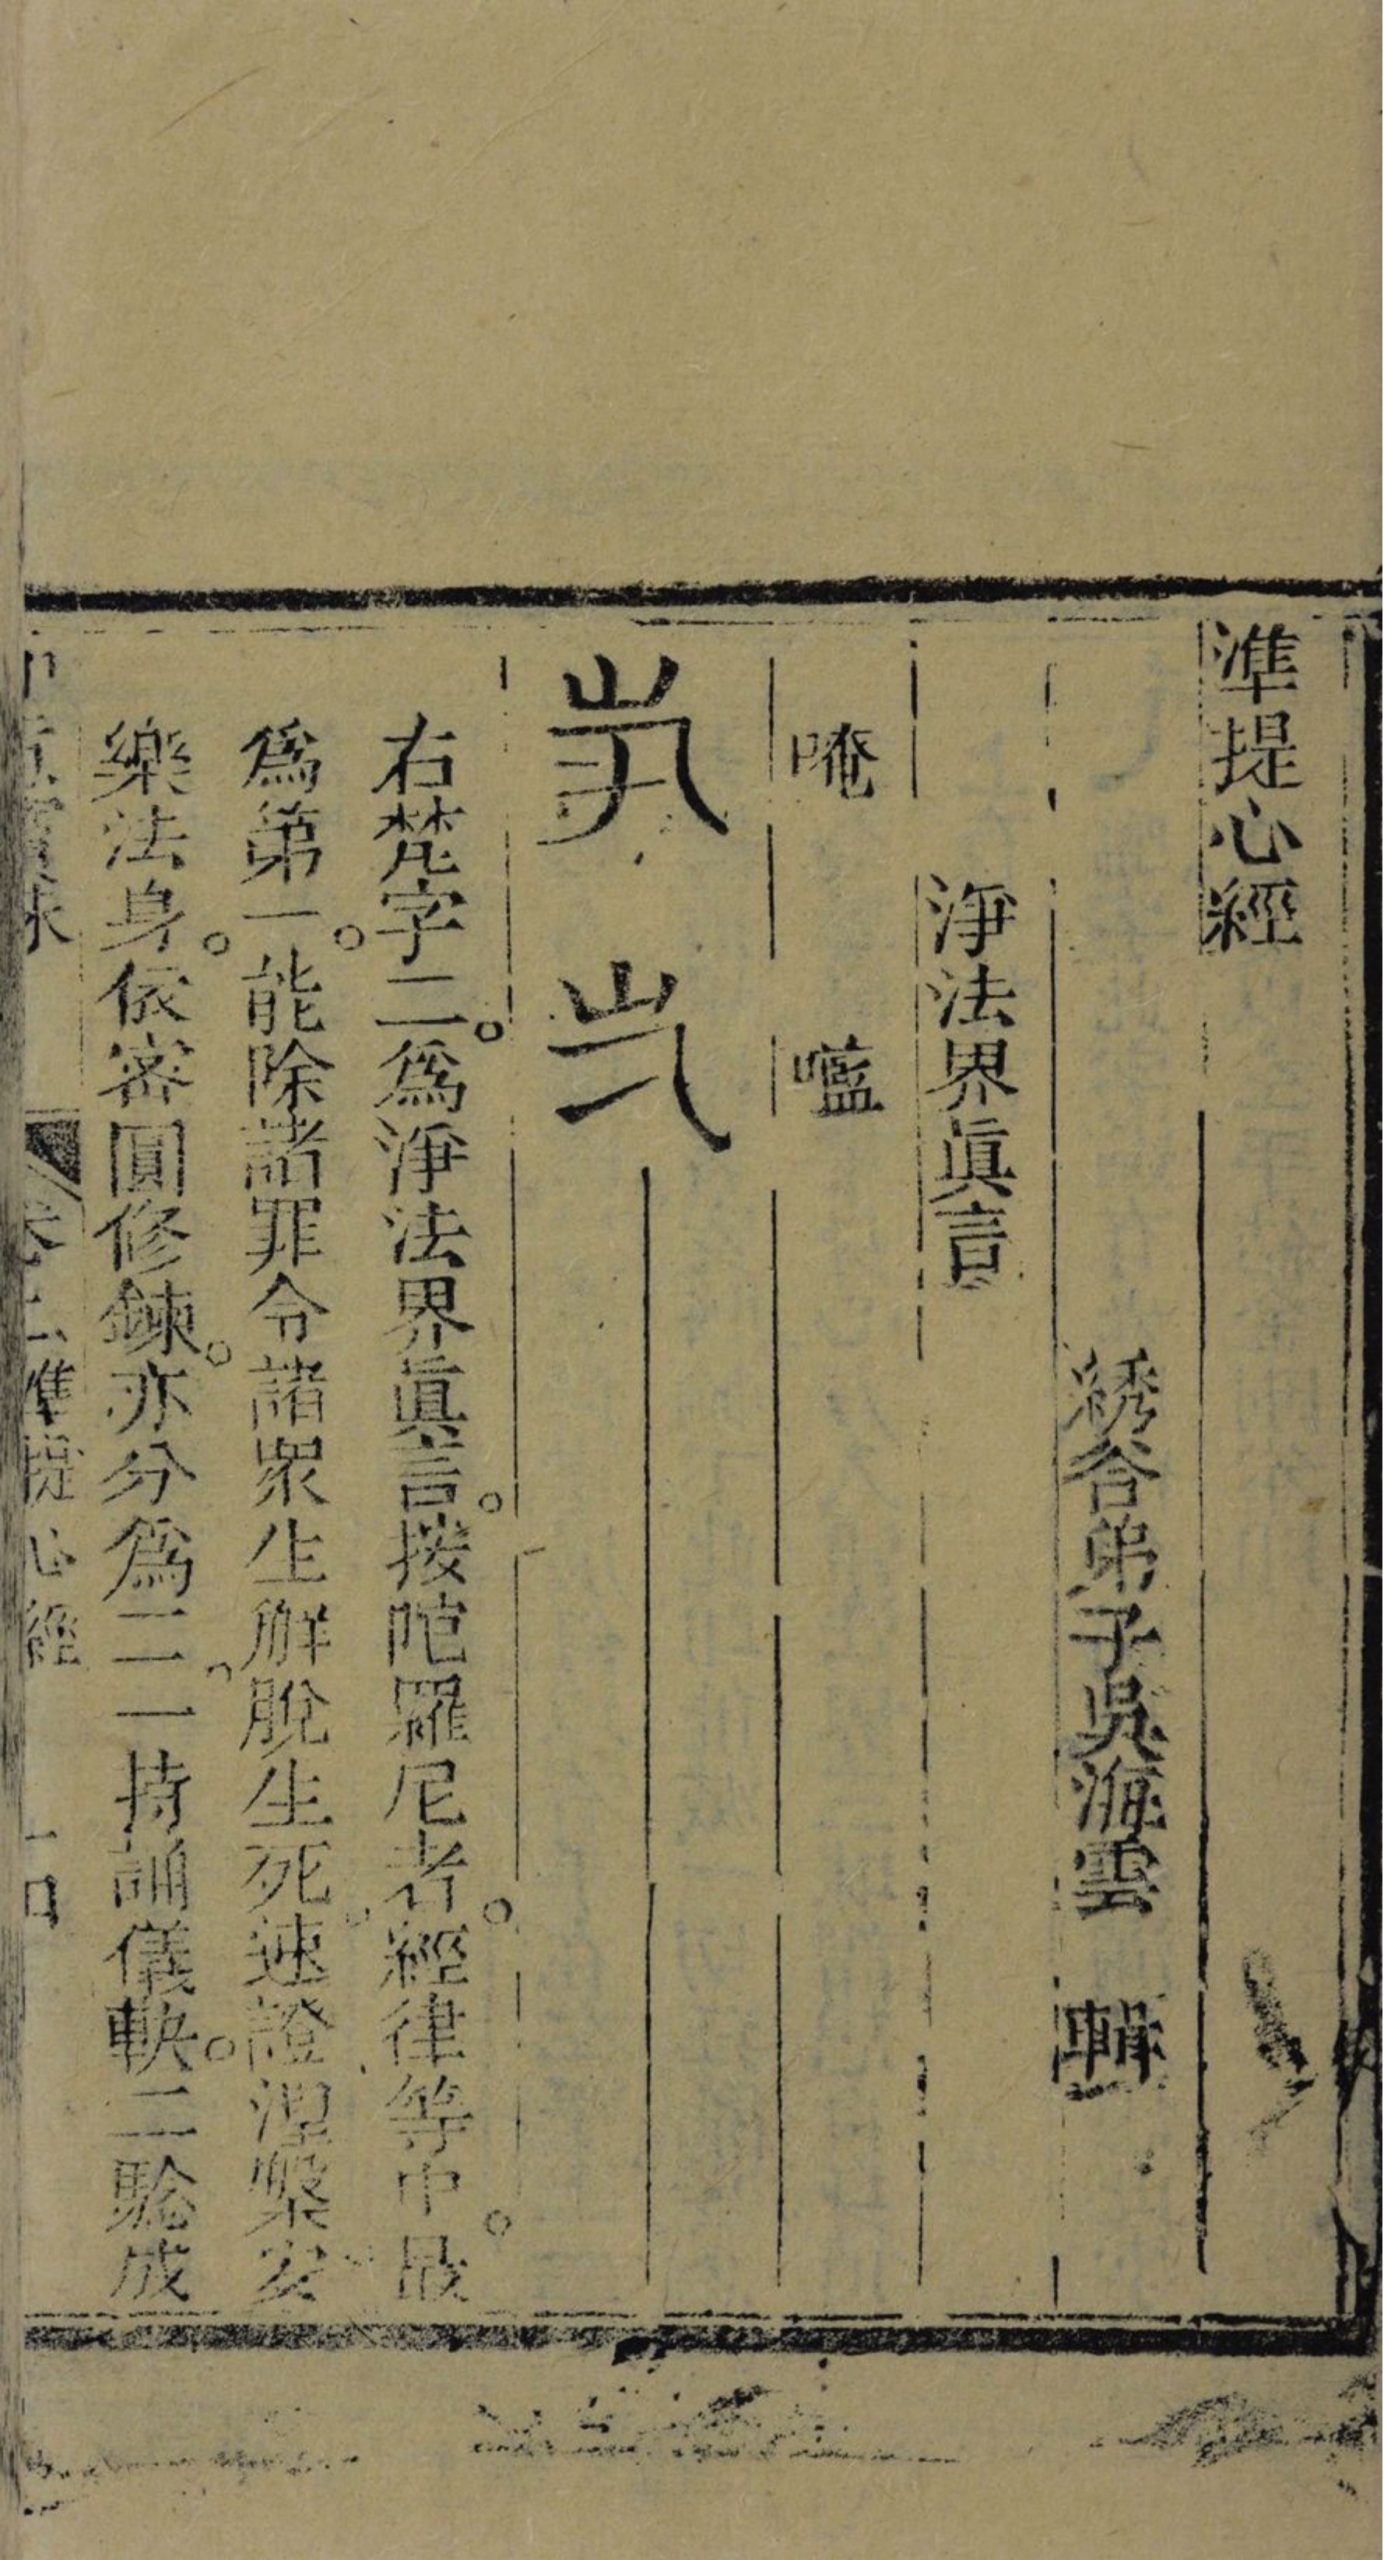 準提心經
綉谷弟子吳海雲 輯
淨法界眞言
唵 㘕
右梵字二爲淨法界眞言按陀羅尼者經律等中最
爲第一能除諸罪令諸衆生解脫生死速證涅槃安
樂法身依密圓修鍊亦分爲二一持誦儀軌二騐成
卷上準提心經